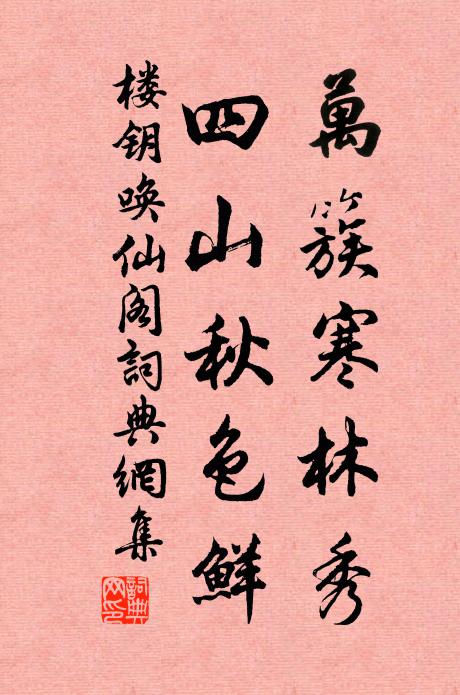 萬簇寒林秀
四山秋色鮮
楼钥唤仙阁詞典網集
詞典
网印